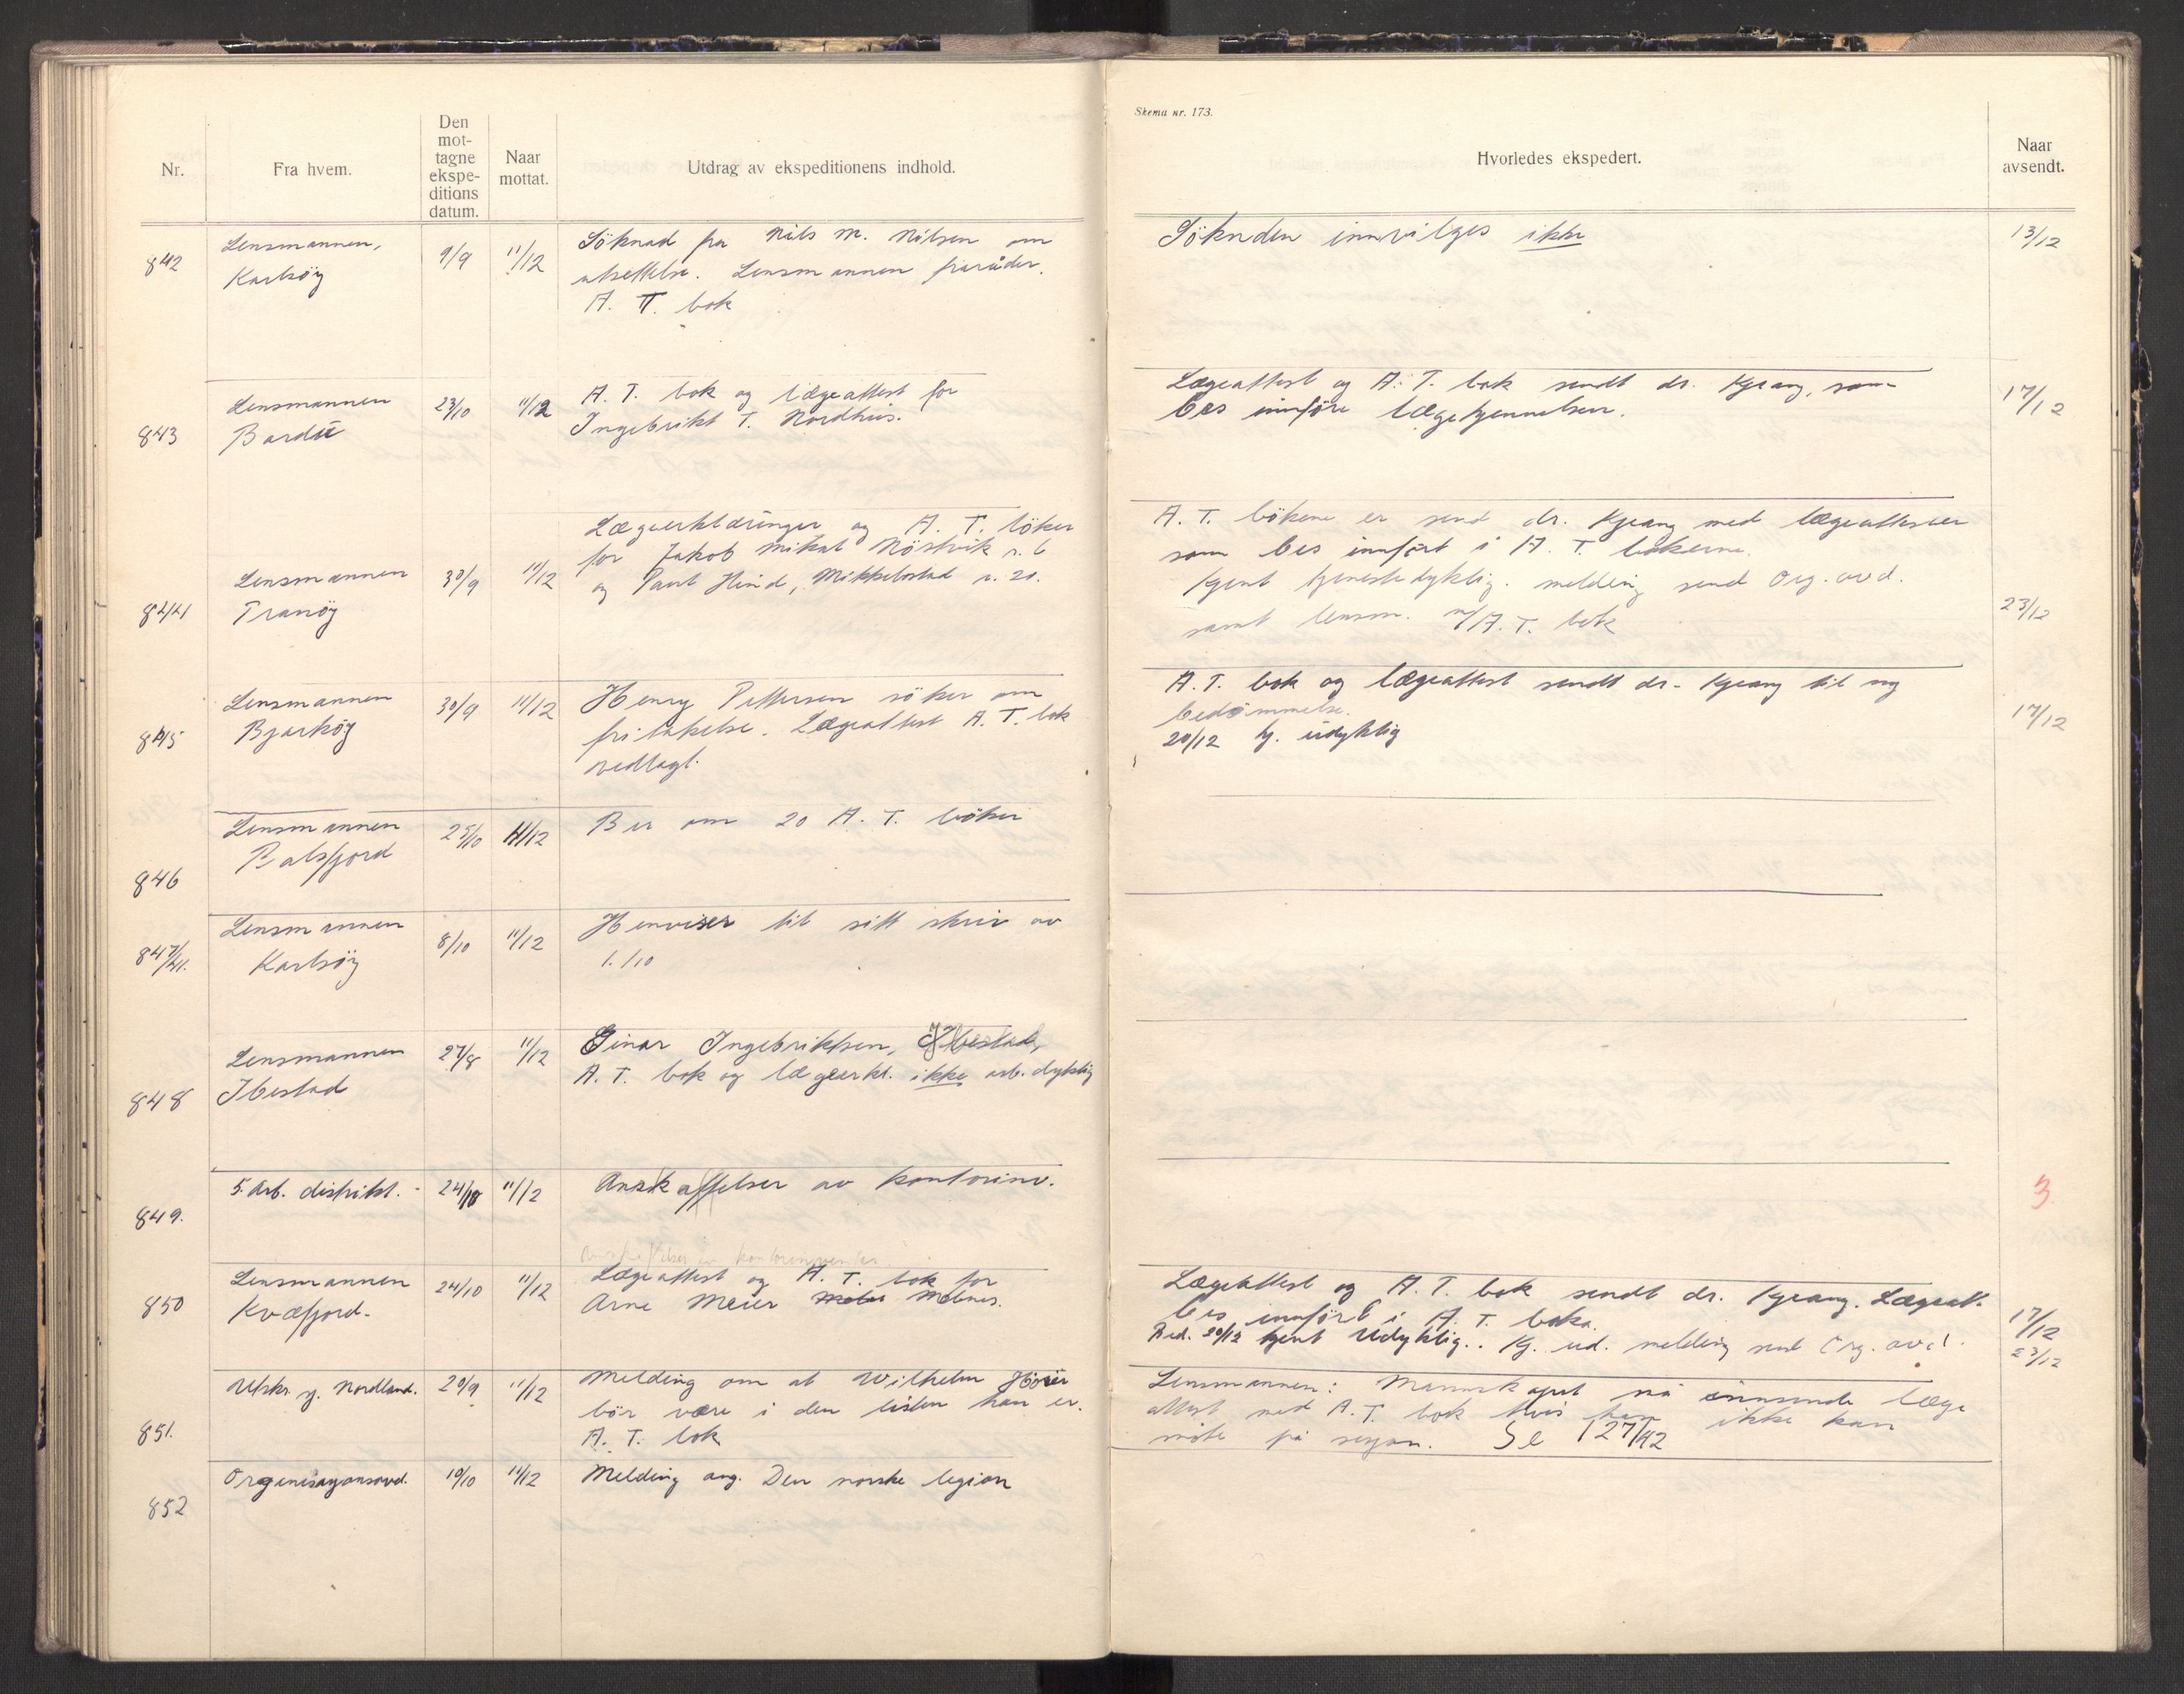 Skema nr. 173.
Nr.
Fra hvem.
Den
mot-
tagne
ekspe-
ditions
datum.
Naar
mottat.
Utdrag av ekspeditionens indhold.
Hvorledes ekspedert.
Naar
avsendt.
842
Lensmannen,
Karlsöy
9/9
11/12
Söknad fra Nils M. Nilsen om
utsettelse. Lensmannen fraråder.
A. T. bok
Söknden innvilges ikke
13/12
843
Lensmannen
Bardu
23/10
11/12
A. T. bok og lægeattest for
Ingebrikt T. Nordhus.
Lægeattest og A. T. bok sendt dr. Kjeang, som
bes innföre lægekjennelsen.
17/12
844
Lensmannen
Tranöy
30/9
11/12
Lægeerklæringer og A. T. böker
for Jakob Mikal Nöstvik r. 6
og Paul Hind, Mikkelbostad r. 20.
A. T. bökene er send dr. Kjeang med lægeattester
som bes innfört i A. T. bökerne.
Kjent tjenestedyktig. melding send Org. avd.
samt lensm. m/A. T. bok
23/12
845
Lensmannen
Bjarköy
30/9
11/12
Henry Pettersen söker om
fritakelse. Lægeattest A. T. bok
vedlagt.
A. T. bok og lægeattest sendt dr. Kjeang til ny
bedömmelse.
20/12 kj. udyktig
17/12
846
Lensmannen
Balsfjord
25/10
11/12
Ber om 20 A. T. böker
847/41.
Lensmannen
Karlsöy
8/10
11/12
Henviser til sitt skriv av
1./10
848
Lensmannen
Ibestad
27/8
11/12
Einar Ingebriktsen, Ibestad,
A. T. bok og lægeerkl. ikke arb. dyktig
849.
5. Arb. distrikt.
24/10
11/12
Anskaffelser av kontorinv.
3
850
Lensmannen
Kvæfjord.
24/10
11/12
Lægeattest og A. T. bok for
Arne Meier Melnes.
Lægeattest og A. T. bok sendt dr. Kjeang. Lægeatt.
bes innfört i A. T. boka.
Bed. 20/12 kjent udyktig. Kj. ud. melding send Org. avd.
17/12
23/12
851.
Utskr. sj. Nordland.
20/9
11/12
Melding om at Wilhelm
bör være i den listen han er.
A. T. bok
Lensmannen: Mannskapet må innsende læge
attest med A. T. bok hvis han ikke kan
möte på sesjon. Se 127/42
852
Organisasjonsavd.
10/10
11/12
Melding ang. Den norske legion